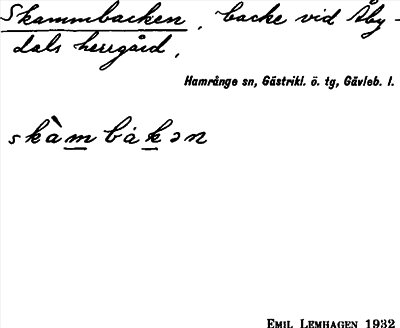 Skammbacken, backe vid Åby-
dals herrgård,
Hamrånge sn, Gästrikl. ö. tg, Gävleb. l.
skàmbákən
EMIL LEMHAGEN 1932